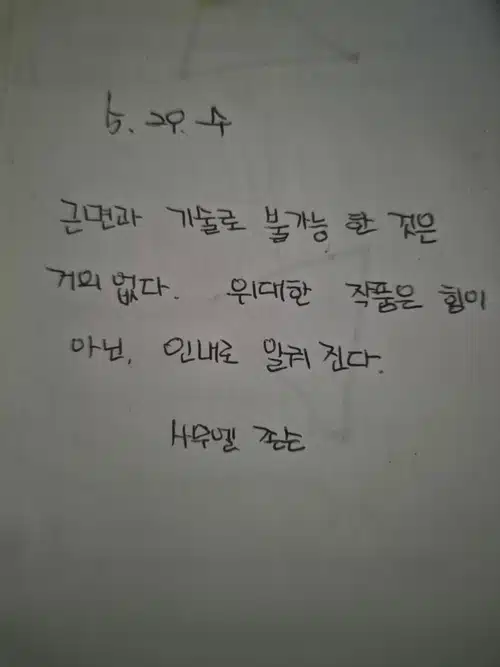 5. 29. 수
근면과 기술로 불가능 한 것은
거의 없다. 위대한 작품은 힘이
아닌, 인내로 일궈 진다.
사무엘 존슨